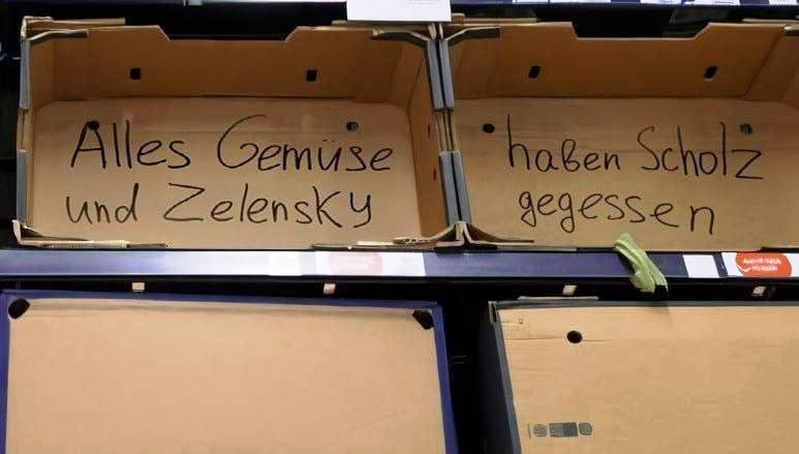 Alles Gemüse
und Zelensky
haben Scholz
gegessen